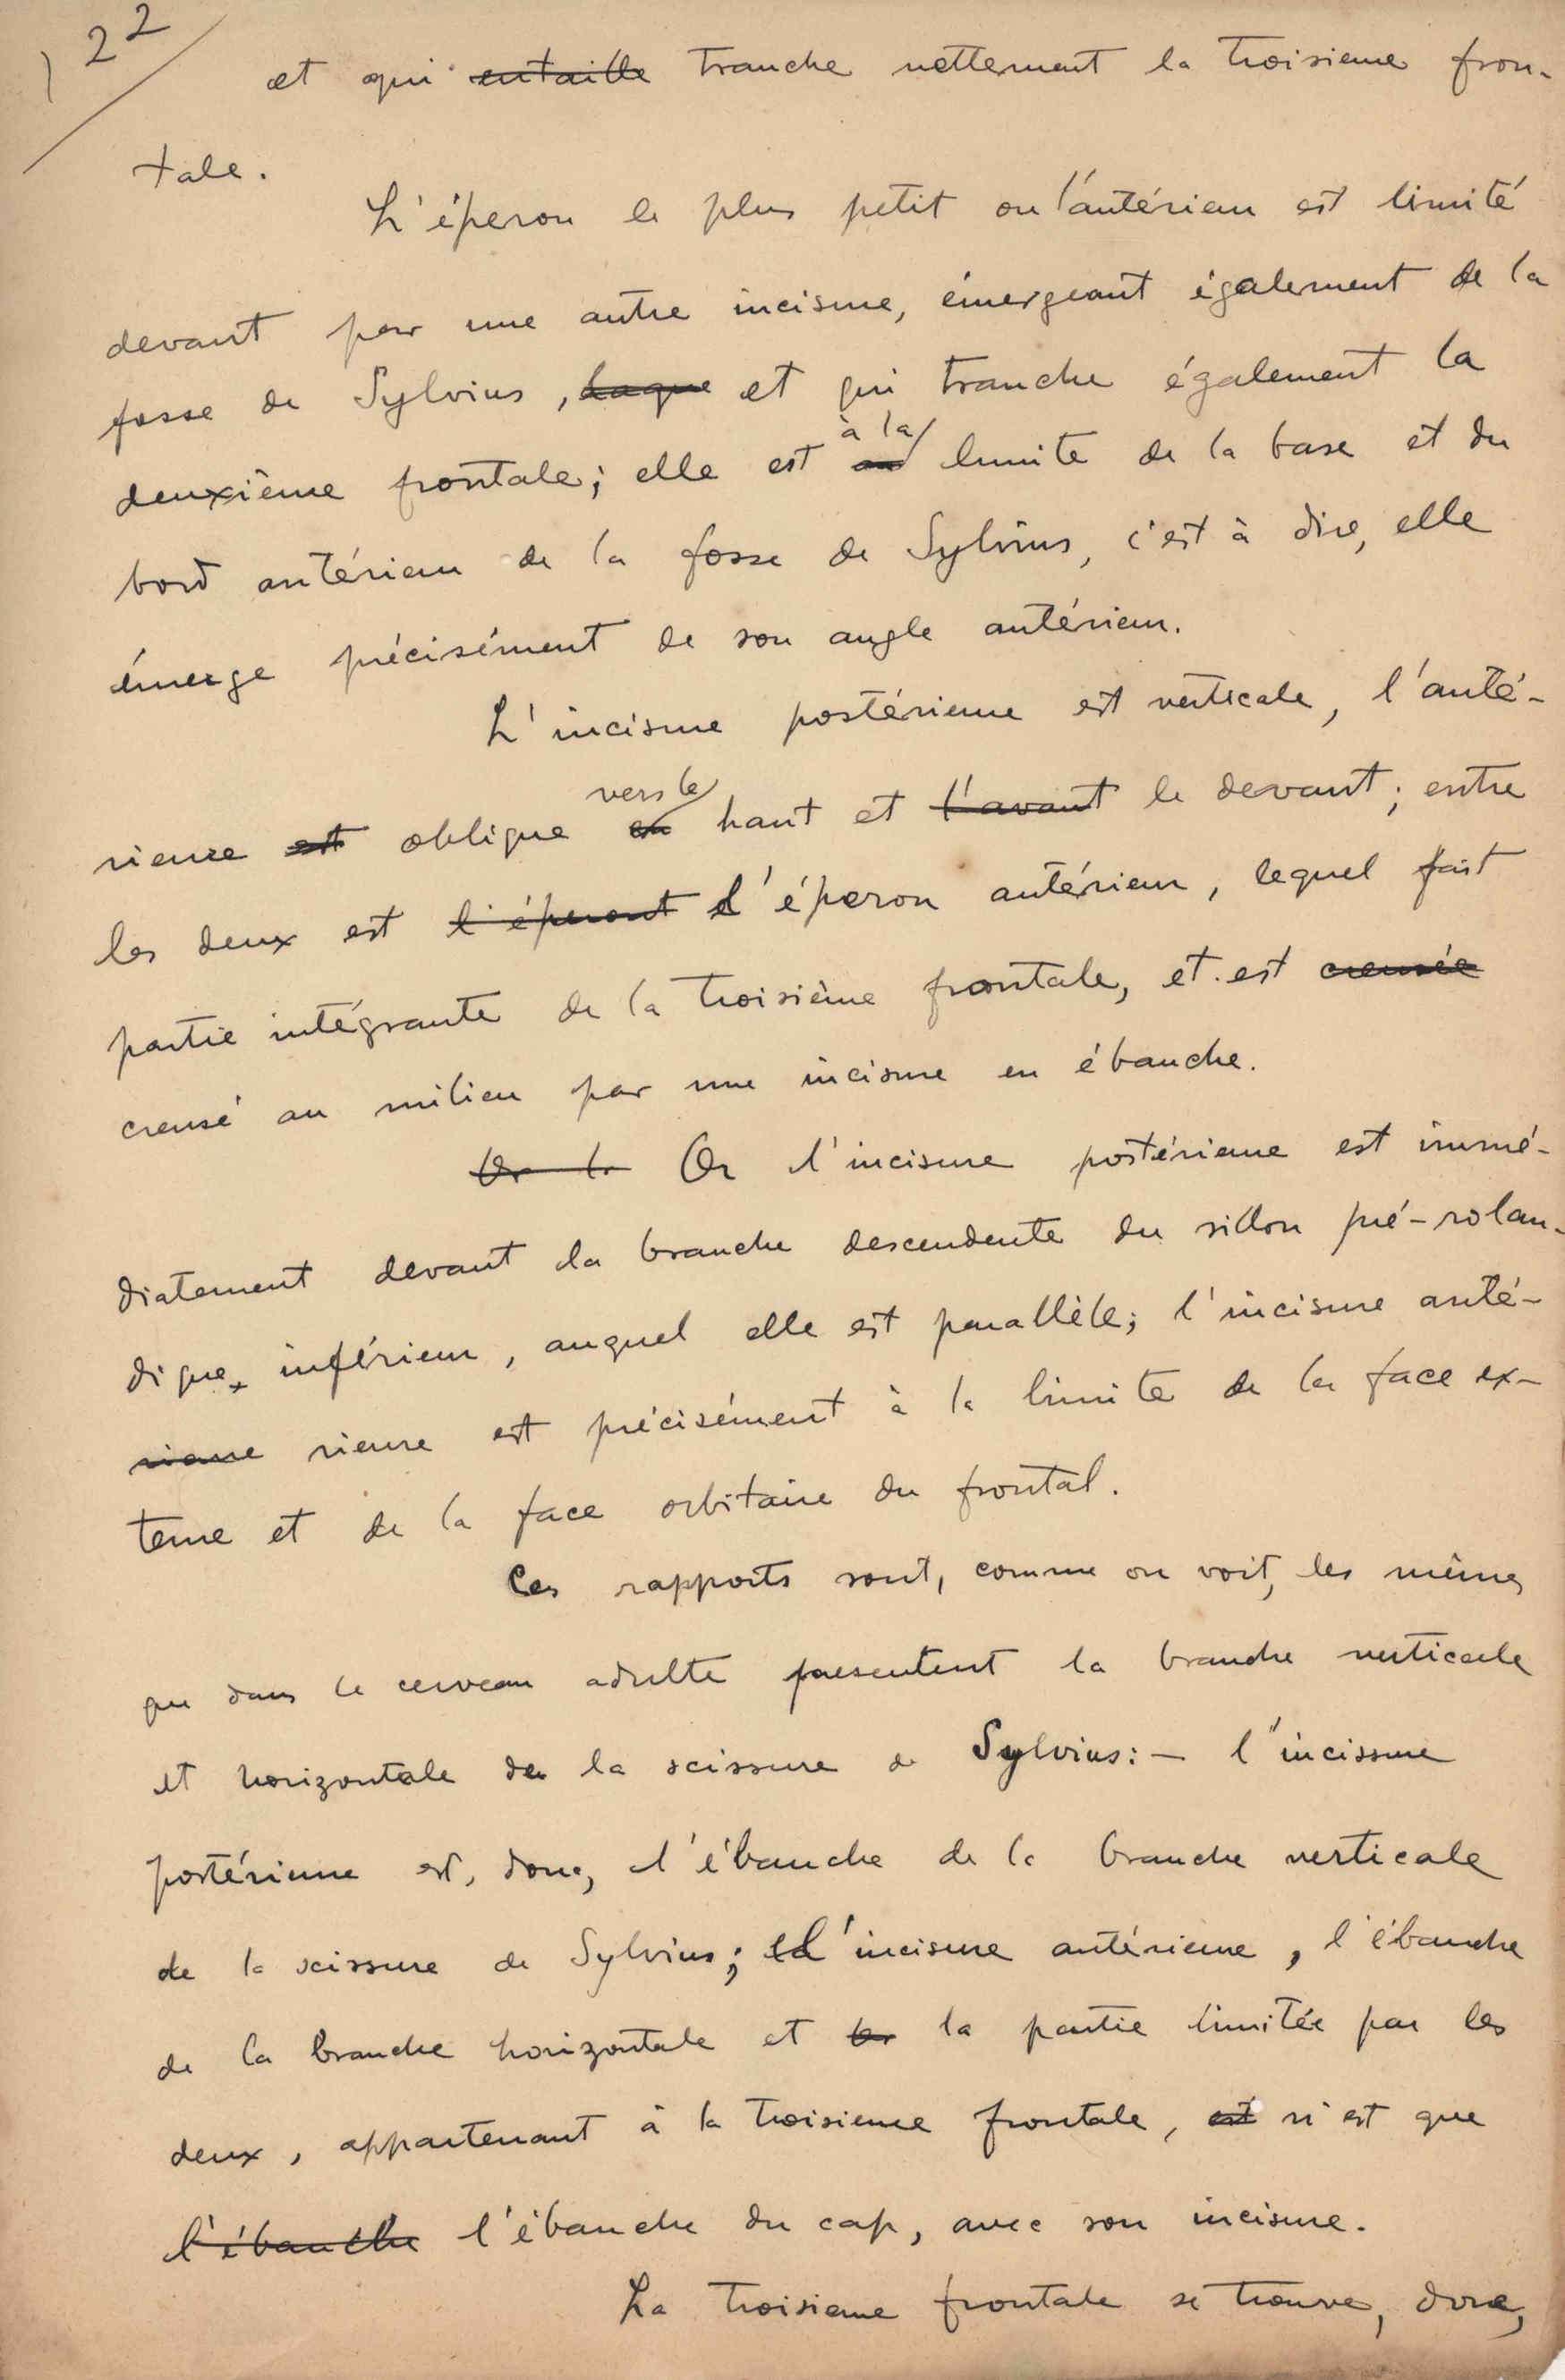 122
et qui entaille tranche nettement la troisieme fron-
tale.
L'éperon le plus petit ou l'antérieur est limité
devant par une autre incisure, émergeant également de la
fosse de Sylvius, laque et qui tranche également la
à la
deuxième frontale; elle est au limite de la base et du
bord antérieur de la fosse de Sylvius, c'est à dire, elle
émerge précisément de son angle antérieur.
L'incisure postérieure est verticale, l'anté-
vers le
rieure est oblique en haut et l'avant le devant; entre
les deux est l'éperont l'éperon antérieur, lequel fait
partie intégrante de la troisième frontale, et est creusée
creusé au milieu par une incisure en ébauche.
Or la Or l'incisure postérieure est immé-
diatement devant la branche descendente du sillon pré-rolan-
dique, inférieur, auquel elle est parallèle; l'incisure anté-
rieure rieure est précisément à la limite de la face ex-
terne et de la face orbitaire du frontal.
Ces rapports sont, comme on voit, les mêmes
que dans le cerveau adulte presentent la branche verticale
et horizontale de la scissure de Sylvius:- l'incissure
postérieure est, donc, l'ébauche de la branche verticale
de la scissure de Sylvius; et l'incisure antérieure, l'ébauche
de la branche horizontale et les la partie limitée par les
deux, appartenant à la troisieme frontale, est n'est que
l'ébauche l'ébauche du cap, avec son incisure.
La troisieme frontale se trouve, donc,